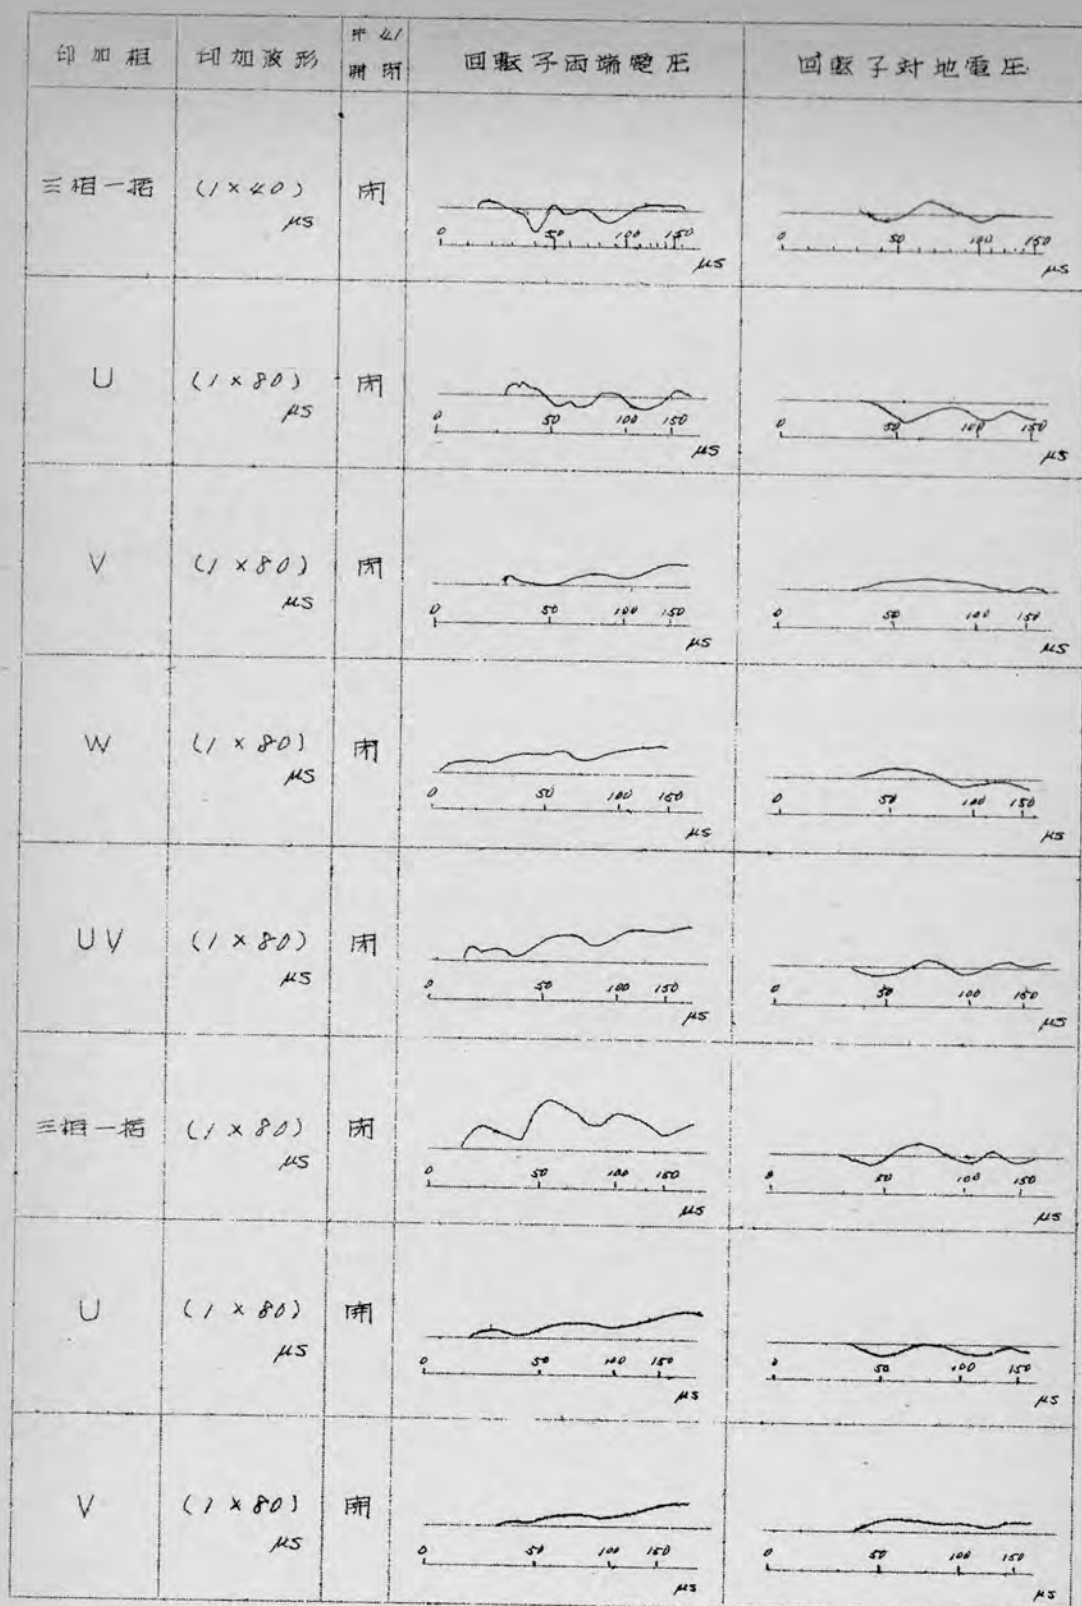 印加相 印加波形 開閉 回転子両端電圧 回転子対地電圧
三相一括 (1×40) 閉
μs
0 50 100 150 μs
0 50 100 150 μs
U (1×80) 閉
μs
0 50 100 150 μs
0 50 100 150 μs
V (1×80) 閉
μs
0 50 100 150 μs
0 50 100 150 μs
W (1×80) 閉
μs
0 50 100 150 μs
0 50 100 150 μs
UV (1×80) 閉
μs
0 50 100 150 μs
0 50 100 150 μs
三相一括 (1×80) 閉
μs
0 50 100 150 μs
0 50 100 150 μs
U (1×80) 開
μs
0 50 100 150 μs
0 50 100 150 μs
V (1×80) 開
μs
0 50 100 150 μs
0 50 100 150 μs